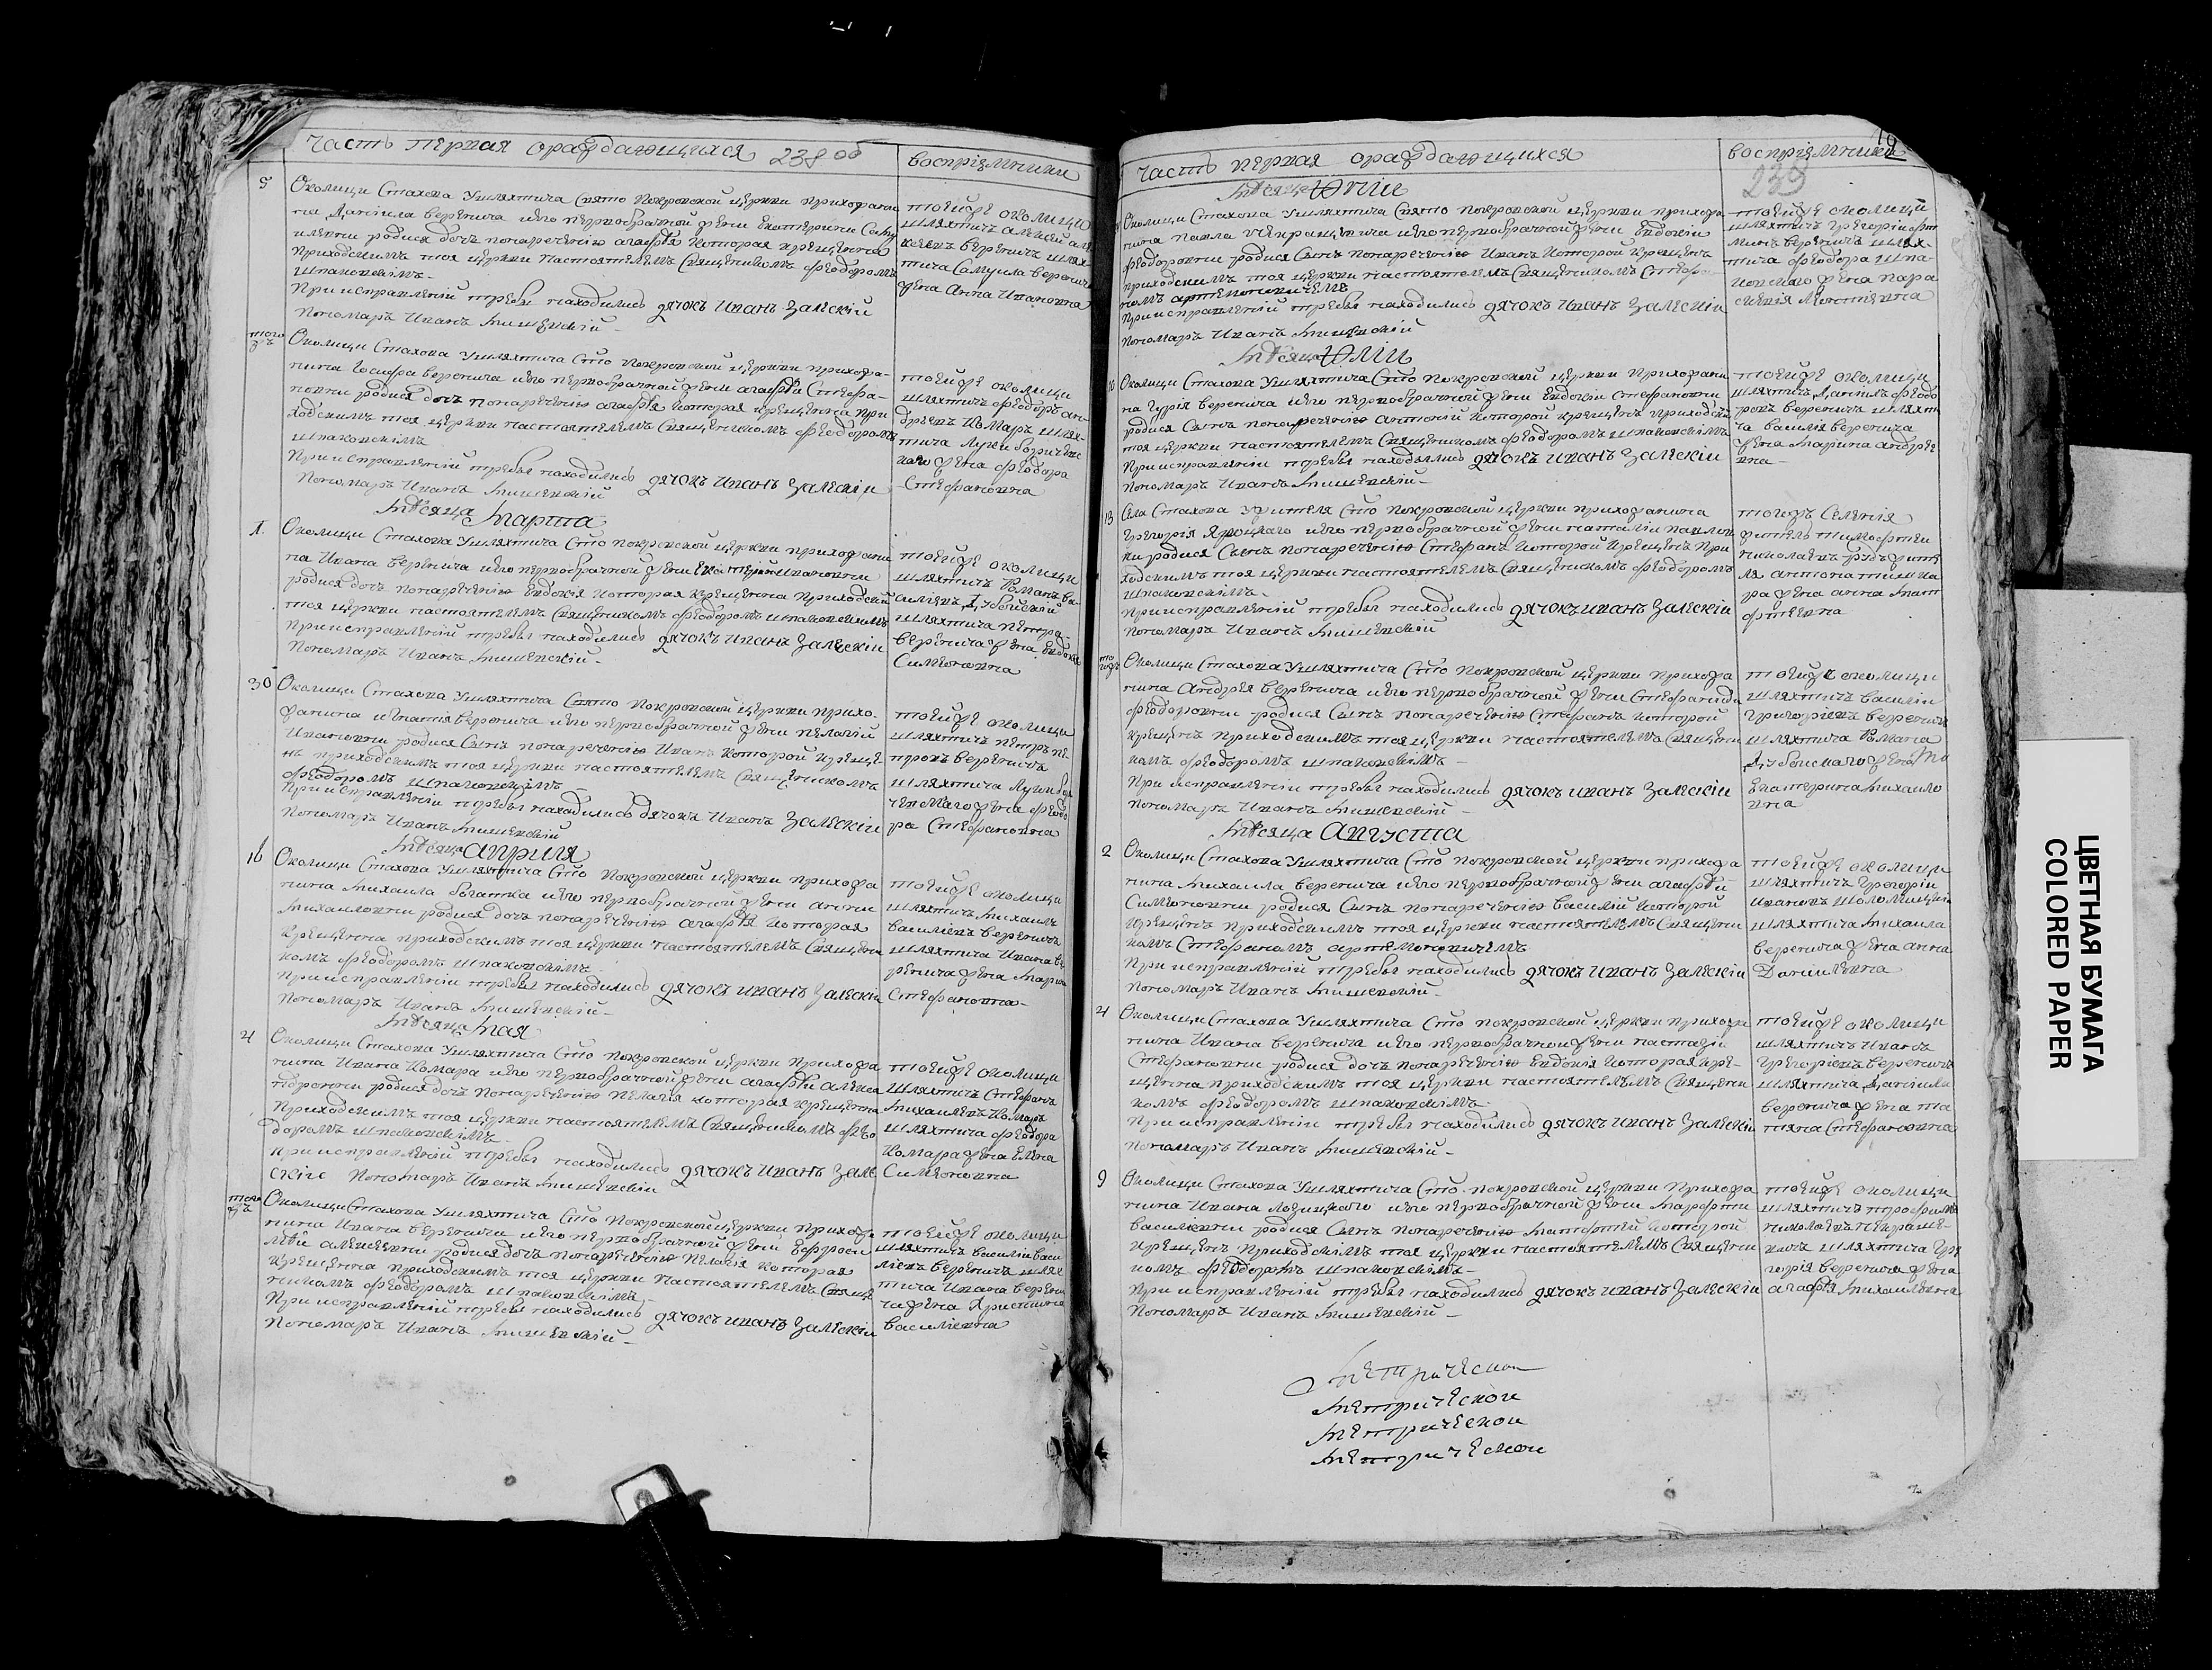 часть первая ораждающихся 238 об
воспріемники
5
Околицы Стахова Ушляхтича Свято Покровской церкви прихожани
на Даніила веренича и его первобрачной жены Екатерины Саму
иленны родися дочь понареченію агафія которая крещенна
приходскимъ тоя церкви настоятелемъ Священикомъ Феодоромъ
шпаковскімъ
При исправленій требы находились дячокъ Иванъ Залескій
Пономаръ Иванъ Мишевскій
тоейже околицы
шляхтичъ алексій але
вереничъ шлях
тича Самуила веренича
жена Анна Ивановна
тогожъ
Околицы Стахова Ушляхтича Сто Покровской церкви прихожа-
нина Іосифа веренича и его первобрачной жены агафіи Стефа-
новны родися дочь понареченію агафія которая крещенна при
ходскимъ тоя церкви настоятелемъ Священикомъ Феодоромъ
шпаковскімъ
При исправленій требы находились дячокъ Иванъ Залескій
Пономаръ Иванъ Мишевскій
тоейже околицы
шляхтичъ Феодоръ ан-
дреевъ Комаръ шлях-
тича Луки
жена Феодора
Стефановна
Мѣсяца Марта
1
Околицы Стахова Ушляхтича Сто Покровской церкви прихожани
на Ивана веренича и его первобрачной жены Екатерини Ивановны
родися дочь понареченію Евдокія которая крещенна приходскимъ
тоя церкви настоятелемъ Священикомъ Феодоромъ шпаковскимъ
При исправленій требы находились дячокъ Иванъ Залескій
Пономаръ Иванъ Мишевскій
тоейже околицы
шляхтичъ Романъ ва-
силіевъ Дубойский
шляхтича Петра
веренича жена Евдокія
Симеоновна
30
Околицы Стахова Ушляхтича Свято Покровской церкви прихо-
жанина игнатія веренича и его первобрачной жены Пелагій
Ивановны родися Сынъ понареченію Иванъ которой креще-
нъ приходскимъ тоя церкви настоятелемъ Священикомъ
Феодоромъ шпаковскімъ
При исправленій требы находились дячокъ Иванъ Залескій
Пономаръ Иванъ Мишевскій
тоейже околицы
шляхтичъ Петръ пе-
тровъ вереничъ
шляхтича Луки
жена Феодо
ра Стефановна
Мѣсяца Априля
16
Околицы Стахова Ушляхтича Сто Покровской церкви прихожа
нина Михаила богатка и его первобрачной жены анны
Михаиловны родися дочь понареченію агафія которая
крещенна приходскимъ тоя церкви настоятелемъ Священи
комъ Феодоромъ шпаковскімъ
При исправленій требы находились дячокъ Иванъ Залескій
Пономаръ Иванъ Мишевскій
тоейже околицы
шляхтичъ Михаилъ
василіевъ вереничъ
шляхтича Ивана ве
ренича жена Марія
Стефановна
Мѣсяца Мая
4
Околицы Стахова Ушляхтича Сто Покровской церкви прихожа
нина Ивана Комара и его первобрачной жены агафіи алекса
ндровны родися дочь понареченію Пелагія которая крещенна
Приходскимъ тоя церкви настоятелемъ Священикомъ Фео
доромъ шпаковскімъ
При исправленій требы находились дячокъ Иванъ Зале
скій Пономаръ Иванъ Мишевскій
тоейже околицы
шляхтичъ Стефанъ
Михаилевъ Комаръ
шляхтича Феодора
Комара жена Елена
Симеоновна
тогожъ
Околицы Стахова Ушляхтича Сто Покровской церкви прихожа
нина Ивана веренича и его первобрачной жены Ефроси
ніи алексеевны родися дочь понареченію Пелагія которая
крещенна приходскимъ тоя церкви настоятелемъ Свяще
никомъ Феодоромъ шпаковскімъ
При исправленій требы находились дячокъ Иванъ Залескій
Пономаръ Иванъ Мишевскій
тоейже околицы
шляхтичъ василій васи
ліевъ вереничъ шлях
тича Ивана верени
ча жена Христина
василіевна
часть первая ораждающихся
воспріемники
239
Мѣсяца Юнія
Околицы Стахова Ушляхтича Свято Покровской церкви прихожа
нина павла и его первобрачной жены Евдокіи
Феодоровны родися Сынъ понареченію Иванъ которой крещенъ
приходскимъ тоя церкви настоятелемъ Священикомъ Стефа
номъ артемоновичемъ
При исправленій требы находились дячокъ Иванъ Залескій
Пономаръ Иванъ Мишевскій
тоейже околицы
шляхтичъ Григорій
вереничъ шлях-
тича Феодора шпа-
ковского жена Пара
скевія
Мѣсяца Юлія
Околицы Стахова Ушляхтича Сто Покровской церкви прихожани
на Гурія веренича и его первобрачной жены Евдокіи Стефановны
родися Сынъ понареченію антоній которой крещенъ приходски
тоя церкви настоятелемъ Священикомъ Феодоромъ шпаковскімъ
При исправленій требы находились дячокъ Иванъ Залескій
Пономаръ Иванъ Мишевскій
тоейже околицы
шляхтичъ Даніилъ Феодо
ровъ вереничъ шляхти
ча василія веренича
жена Марина андрее
вна
13
Села Стахова ужителя Сто Покровской церкви прихожанина
Григорія Яроцкаго и его первобрачной жены наталіи павлов
ны родися Сынъ понареченію Стефанъ которой крещенъ при
ходскимъ тоя церкви настоятелемъ Священикомъ Феодоромъ
шпаковскімъ
При исправленій требы находились дячокъ Иванъ Залескій
Пономаръ Иванъ Мишевскій
тогожъ Селенія
житель тимофей
николаевъ жите
ля антона
жена анна Мат
феевна
тогожъ
Околицы Стахова Ушляхтича Сто Покровской церкви прихожа
нина Андрея веренича и его первобрачной жены Стефаниды
Феодоровны родися Сынъ понареченію Стефанъ которой
крещенъ приходскимъ тоя церкви настоятелемъ Священи
комъ Феодоромъ шпаковскімъ
При исправленій требы находились дячокъ Иванъ Залескій
Пономаръ Иванъ Мишевскій
тоейже околицы
шляхтичъ василій
григоріевъ веренич
шляхтича Романа
Дубойскаго жена
Екатерина Михаило
вна
Мѣсяца Августа
2
Околицы Стахова Ушляхтича Сто Покровской церкви прихожа
нина Михаила веренича и его первобрачной жены агафіи
Симеоновны родися Сынъ понареченію василій которой
крещенъ приходскимъ тоя церкви настоятелемъ Священи
комъ Стефаномъ артемоновичемъ
При исправленій требы находились дячокъ Иванъ Залескій
Пономаръ Иванъ Мишевскій
тоейже околицы
шляхтичъ Григорій
Ивановъ Шоломицкій
шляхтича Михаила
веренича жена анна
Даниілевна
4
Околицы Стахова Ушляхтича Сто Покровской церкви прихожа
нина Ивана веренича и его первобрачной жены настазіи
Стефановны родися дочь понареченію Евдокія которая кре-
щенна приходскимъ тоя церкви настоятелемъ Священи
комъ Феодоромъ шпаковскімъ
При исправленій требы находились дячокъ Иванъ Залескій
Пономаръ Иванъ Мишевскій
тоейже околицы
шляхтичъ Иванъ
Григоріевъ веренич
шляхтича Даніила
веренича жена та
тіяна Стефановна
9
Околицы Стахова Ушляхтича Сто Покровской церкви прихожа
нина Ивана Лозицкого и его первобрачной жены Марфы
василевны родися Сынъ понареченію Матфей которой
крещенъ приходскімъ тоя церкви настоятелемъ Священи
комъ Феодоромъ шпаковскімъ
При исправленій требы находились дячокъ Иванъ Залескій
Пономаръ Иванъ Мишевскій
тоейже околицы
шляхтичъ трофимъ
николаевъ
шляхтича Гри
горія веренича жена
агафія Михаиловна
Метрической
Метрической
Метрической
Метрической
ЦВЕТНАЯ БУМАГА
COLORED PAPER